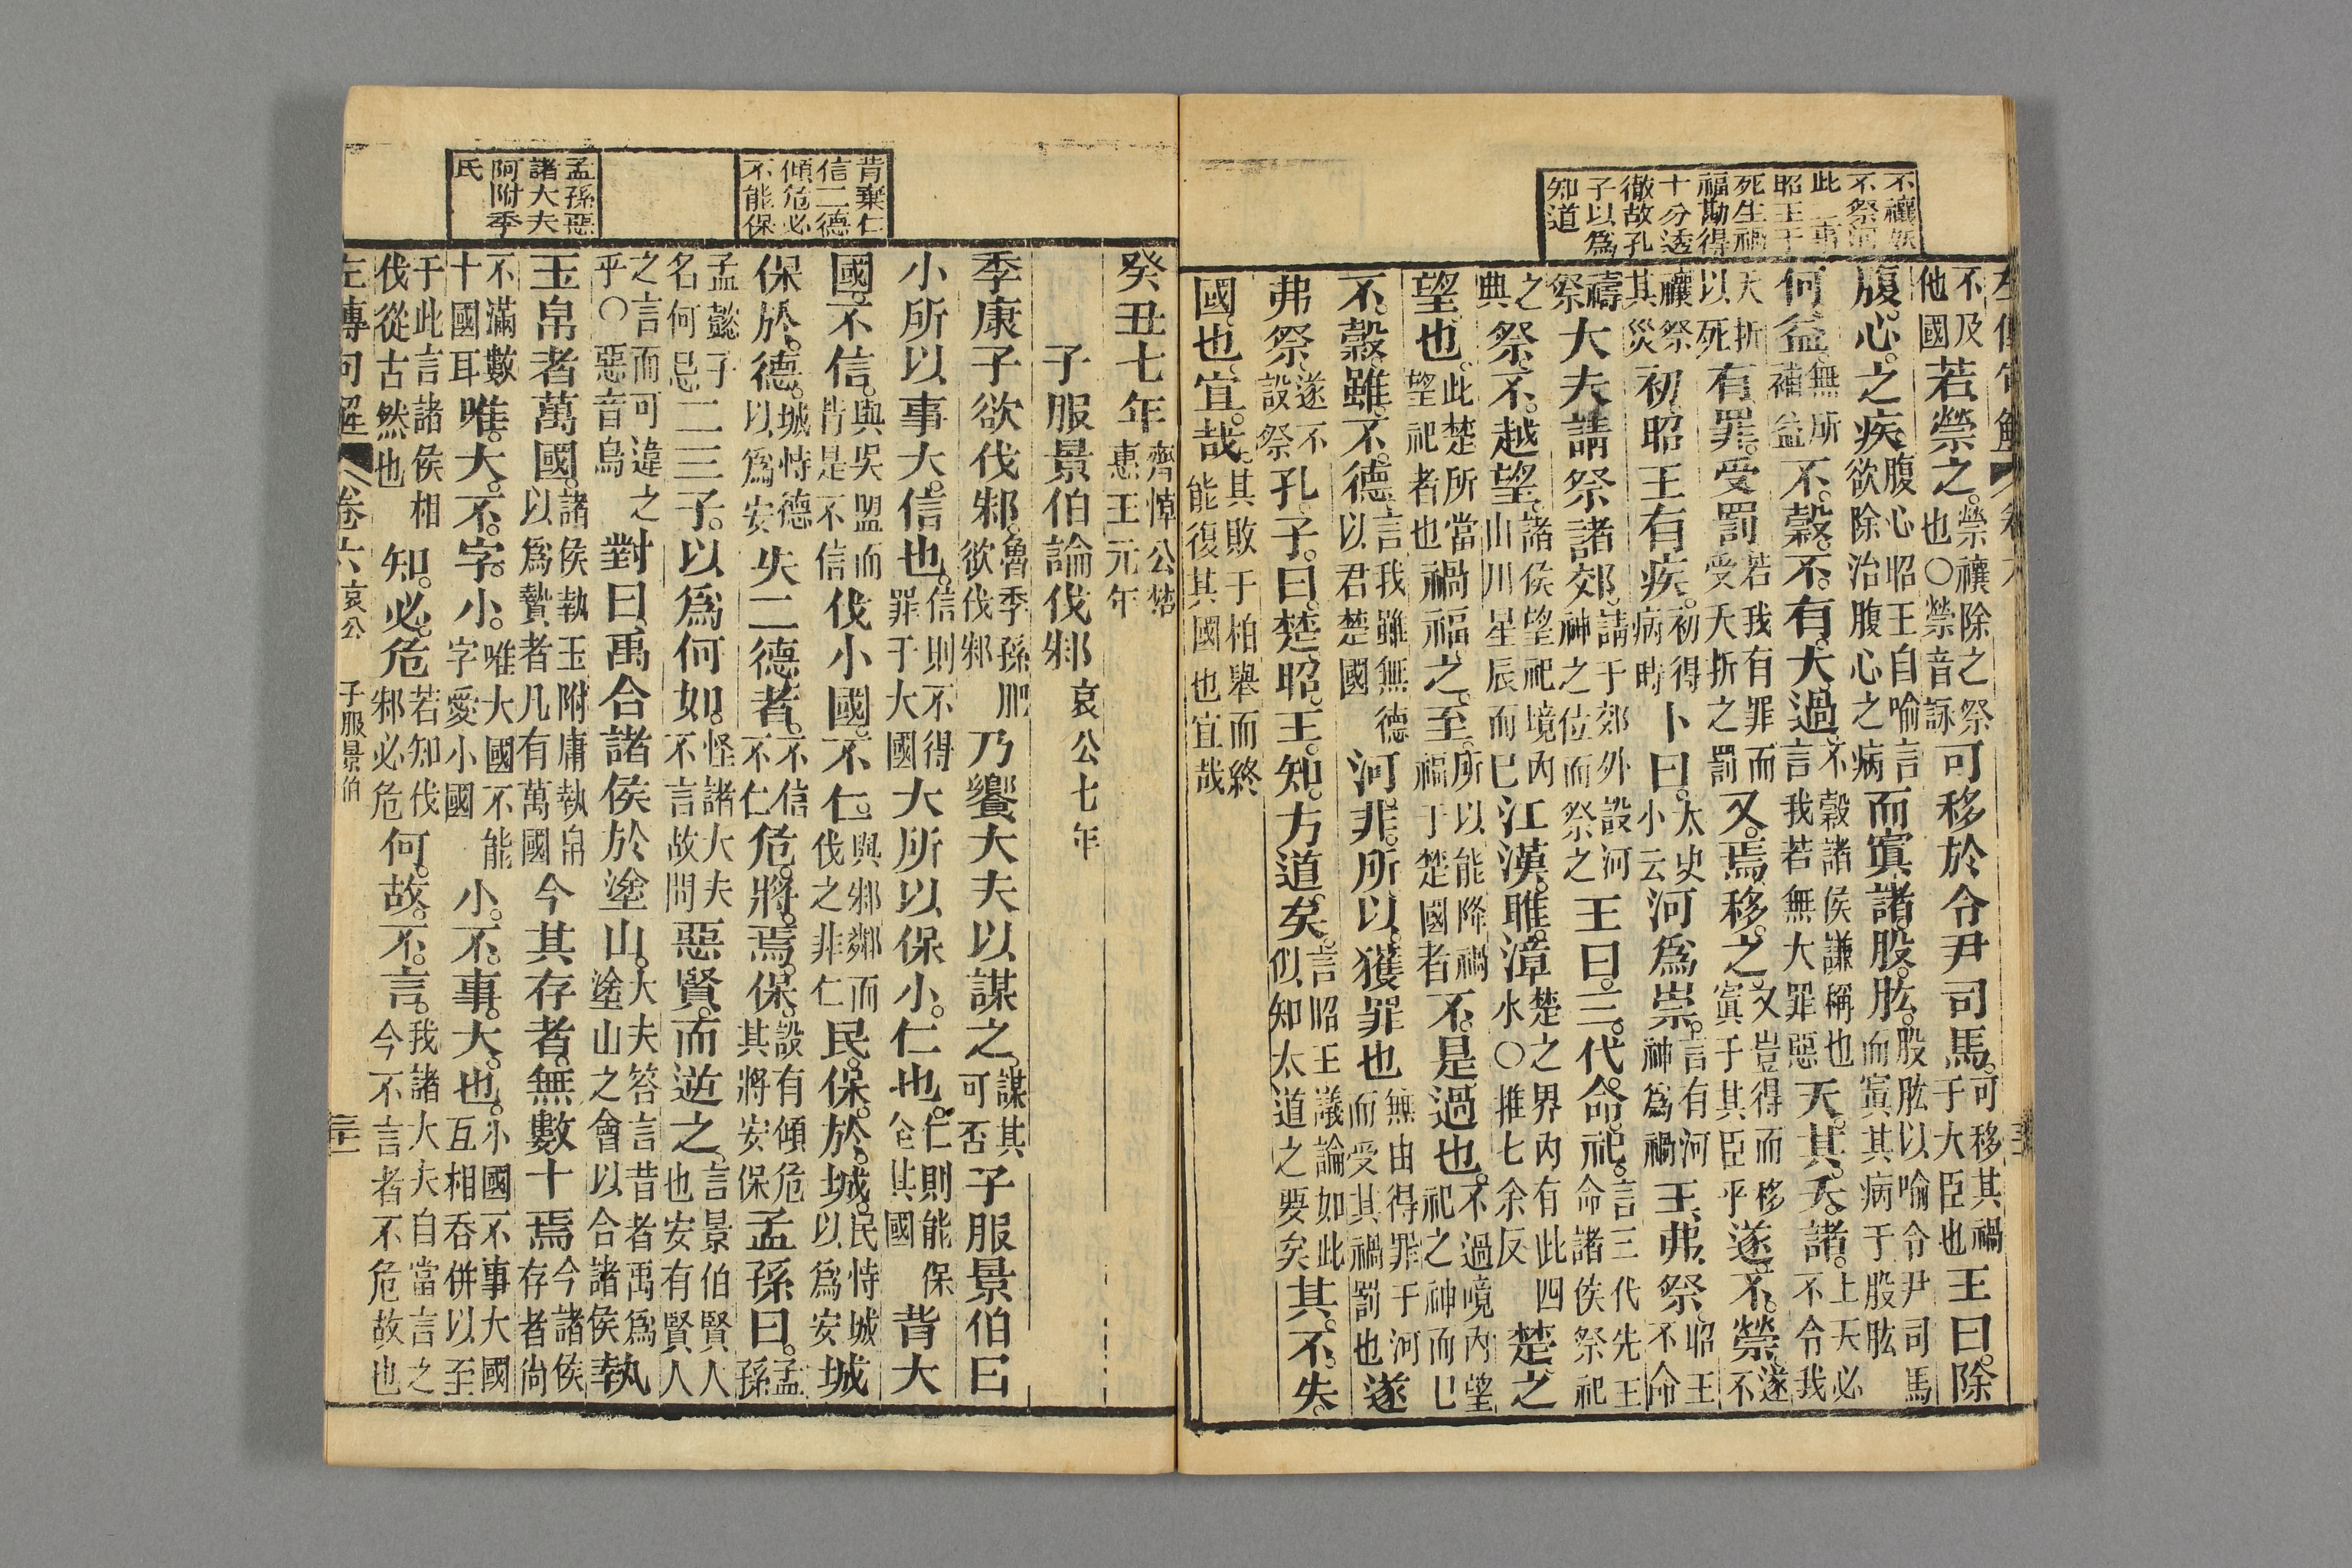 左傳句解 卷六
不禳妖
不祭河
此二事
昭王于
死生禍
福勘得
十分透
徹故孔
子以爲
知道
不及他國若禜之禜禳除之祭也○禜音詠可移於令尹司馬可移其禍于大臣也王曰除
腹心之疾腹心昭王自喻言欲除治腹心之病而寘諸股肱股肱以喻令尹司馬而寘其病于股肱
何益無所補益不穀不有大過不穀諸侯謙稱也言我若無大罪惡天其夭諸上天必不令我
夭折以死有罪受罰若我有罪而受夭折之罰又焉移之又豈得而移寘于其臣乎遂不禜遂不
禳祭其災初昭王有疾初得病時卜曰太史小云河爲祟言有河神爲禍王弗祭昭王不命
禱祭大夫請祭諸郊請于郊外設河神之位而祭之王曰三代命祀言三代先王命諸侯祭祀
之典祭不越望諸侯望祀境內山川星辰而已江漢雎漳楚之界內有此四水○推七余反楚之
望也此楚所當望祀者也禍福之至所以能降禍福于楚國者不是過也不過境內望祀之神而已
不穀雖不德言我雖無德以君楚國河非所以獲罪也無由得罪于河而受其禍罰也遂
弗祭遂不設祭孔子曰楚昭王知方道矣言昭王議論如此似知太道之要矣其不失
國也宜哉其敗于柏舉而終能復其國也宜哉
背棄仁
信二德
傾危必
不能保
孟孫惡
諸大夫
阿附季
氏
癸丑七年齊悼公楚惠王元年
子服景伯論伐邾哀公七年
季康子欲伐邾魯季孫肥欲伐邾乃饗大夫以謀之謀其可否子服景伯曰
小所以事大信也信則不得罪于大國大所以保小仁也仁則能保仝其國背大
國不信與吳盟而背是不信伐小國不仁與邾鄰而伐之非仁民保於城民恃城以爲安城
保於德城恃德以爲安失二德者不信不仁危將焉保設有傾危其將安保孟孫曰孟孫
孟懿子名何忌二三子以爲何如怪諸大夫不言故問惡賢而逆之言景伯賢人也安有賢人
之言而可違之乎○惡音烏對曰禹合諸侯於塗山大夫答言昔者禹爲塗山之會以合諸侯執
玉帛者萬國諸侯執玉附庸執帛以爲贄者凡有萬國今其存者無數十焉今諸侯存者尚
不滿數十國耳唯大不字小唯大國不能字愛小國小不事大也小國不事大國互相吞併以至
于此言諸侯相伐從古然也知必危若知伐邾必危何故不言我諸大夫自當言之今不言者不危故也
左傳句解 卷六 哀公 子服景伯